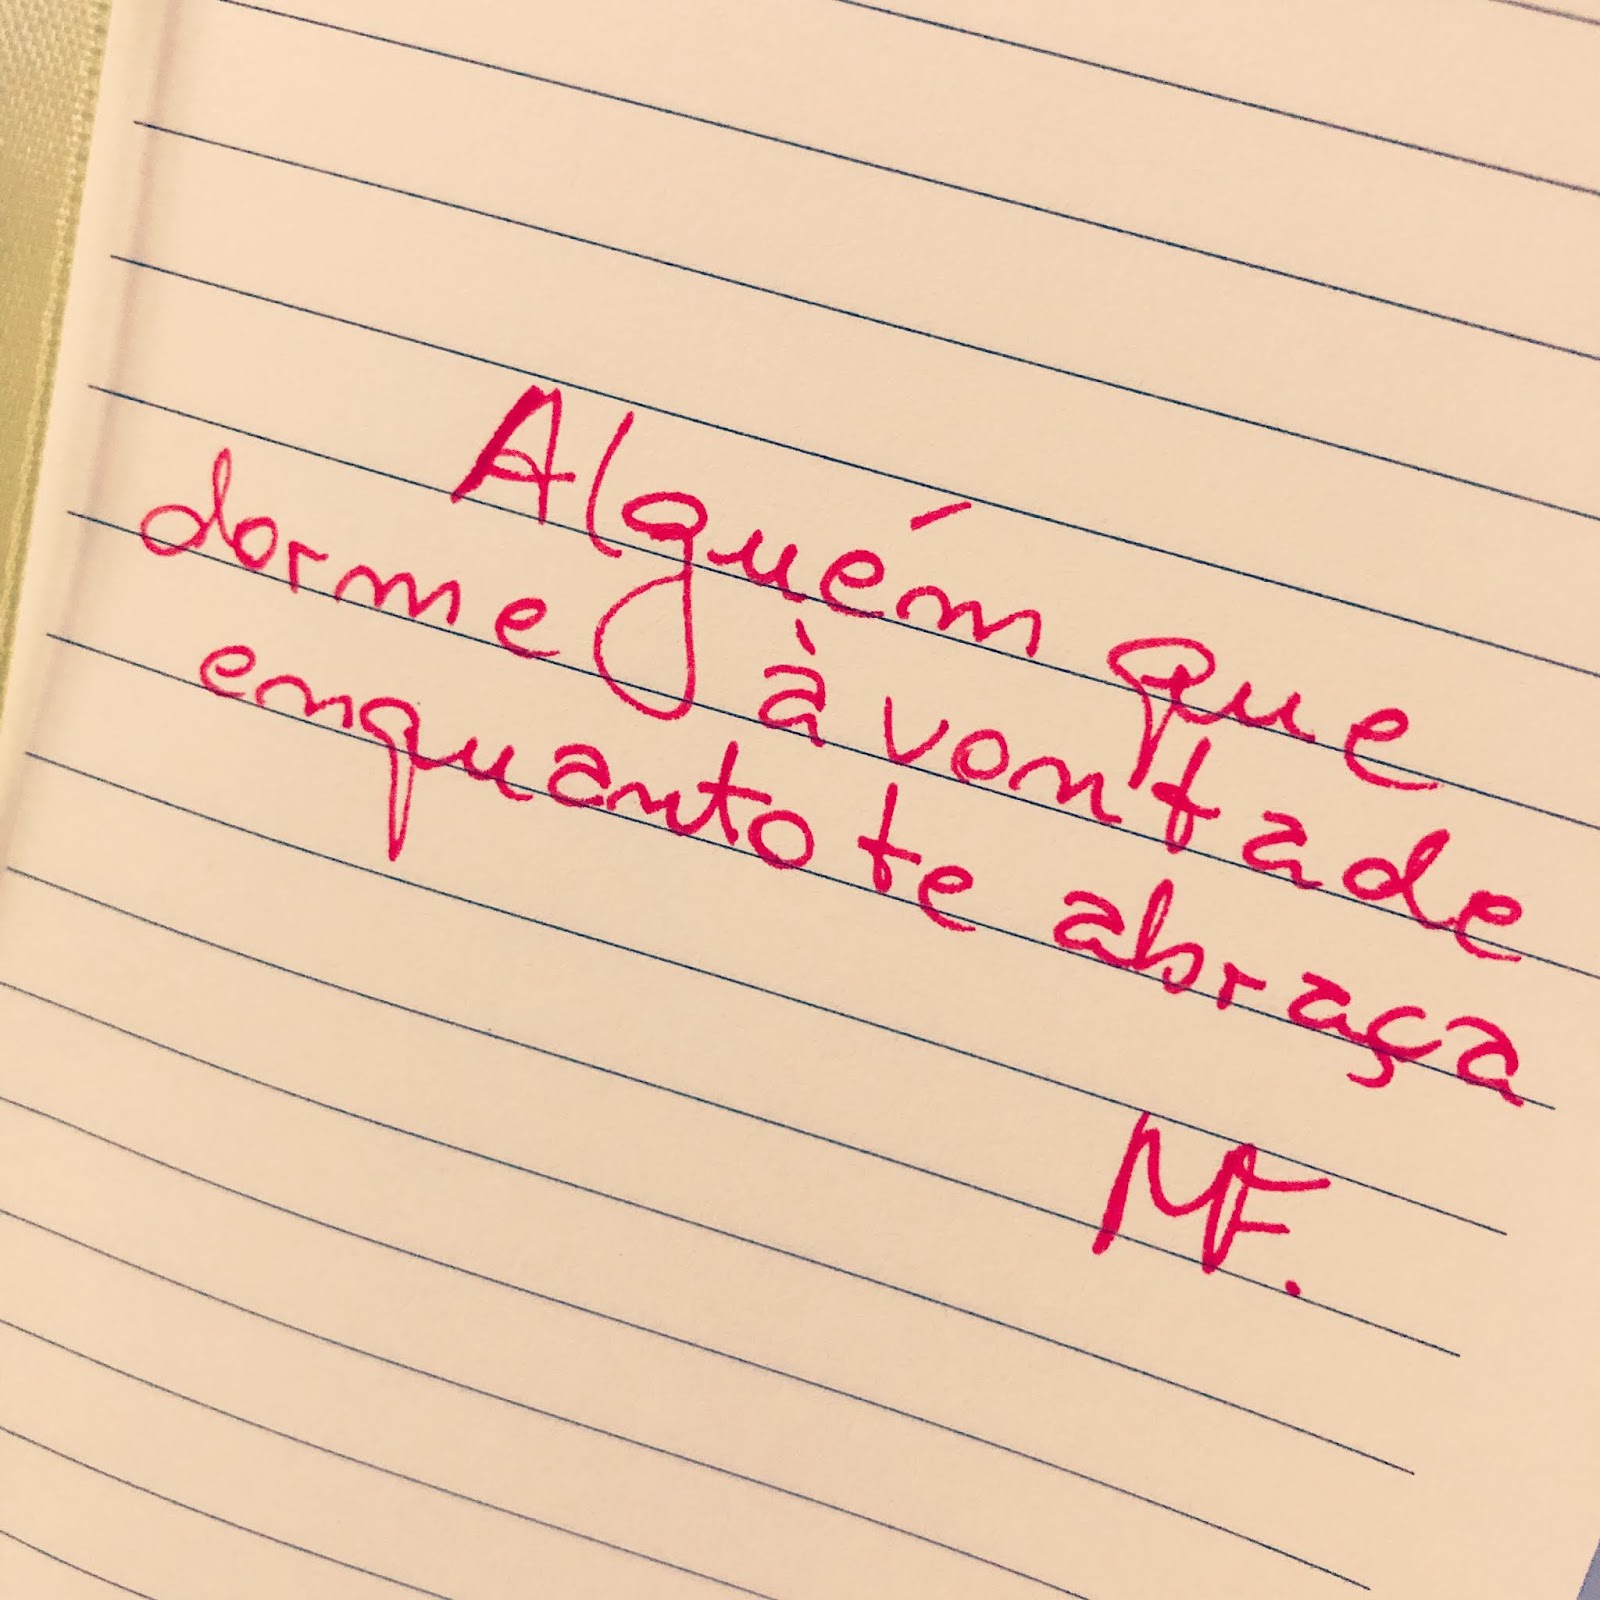 Alguém que
dorme à vontade
enquanto te abraça
MF.